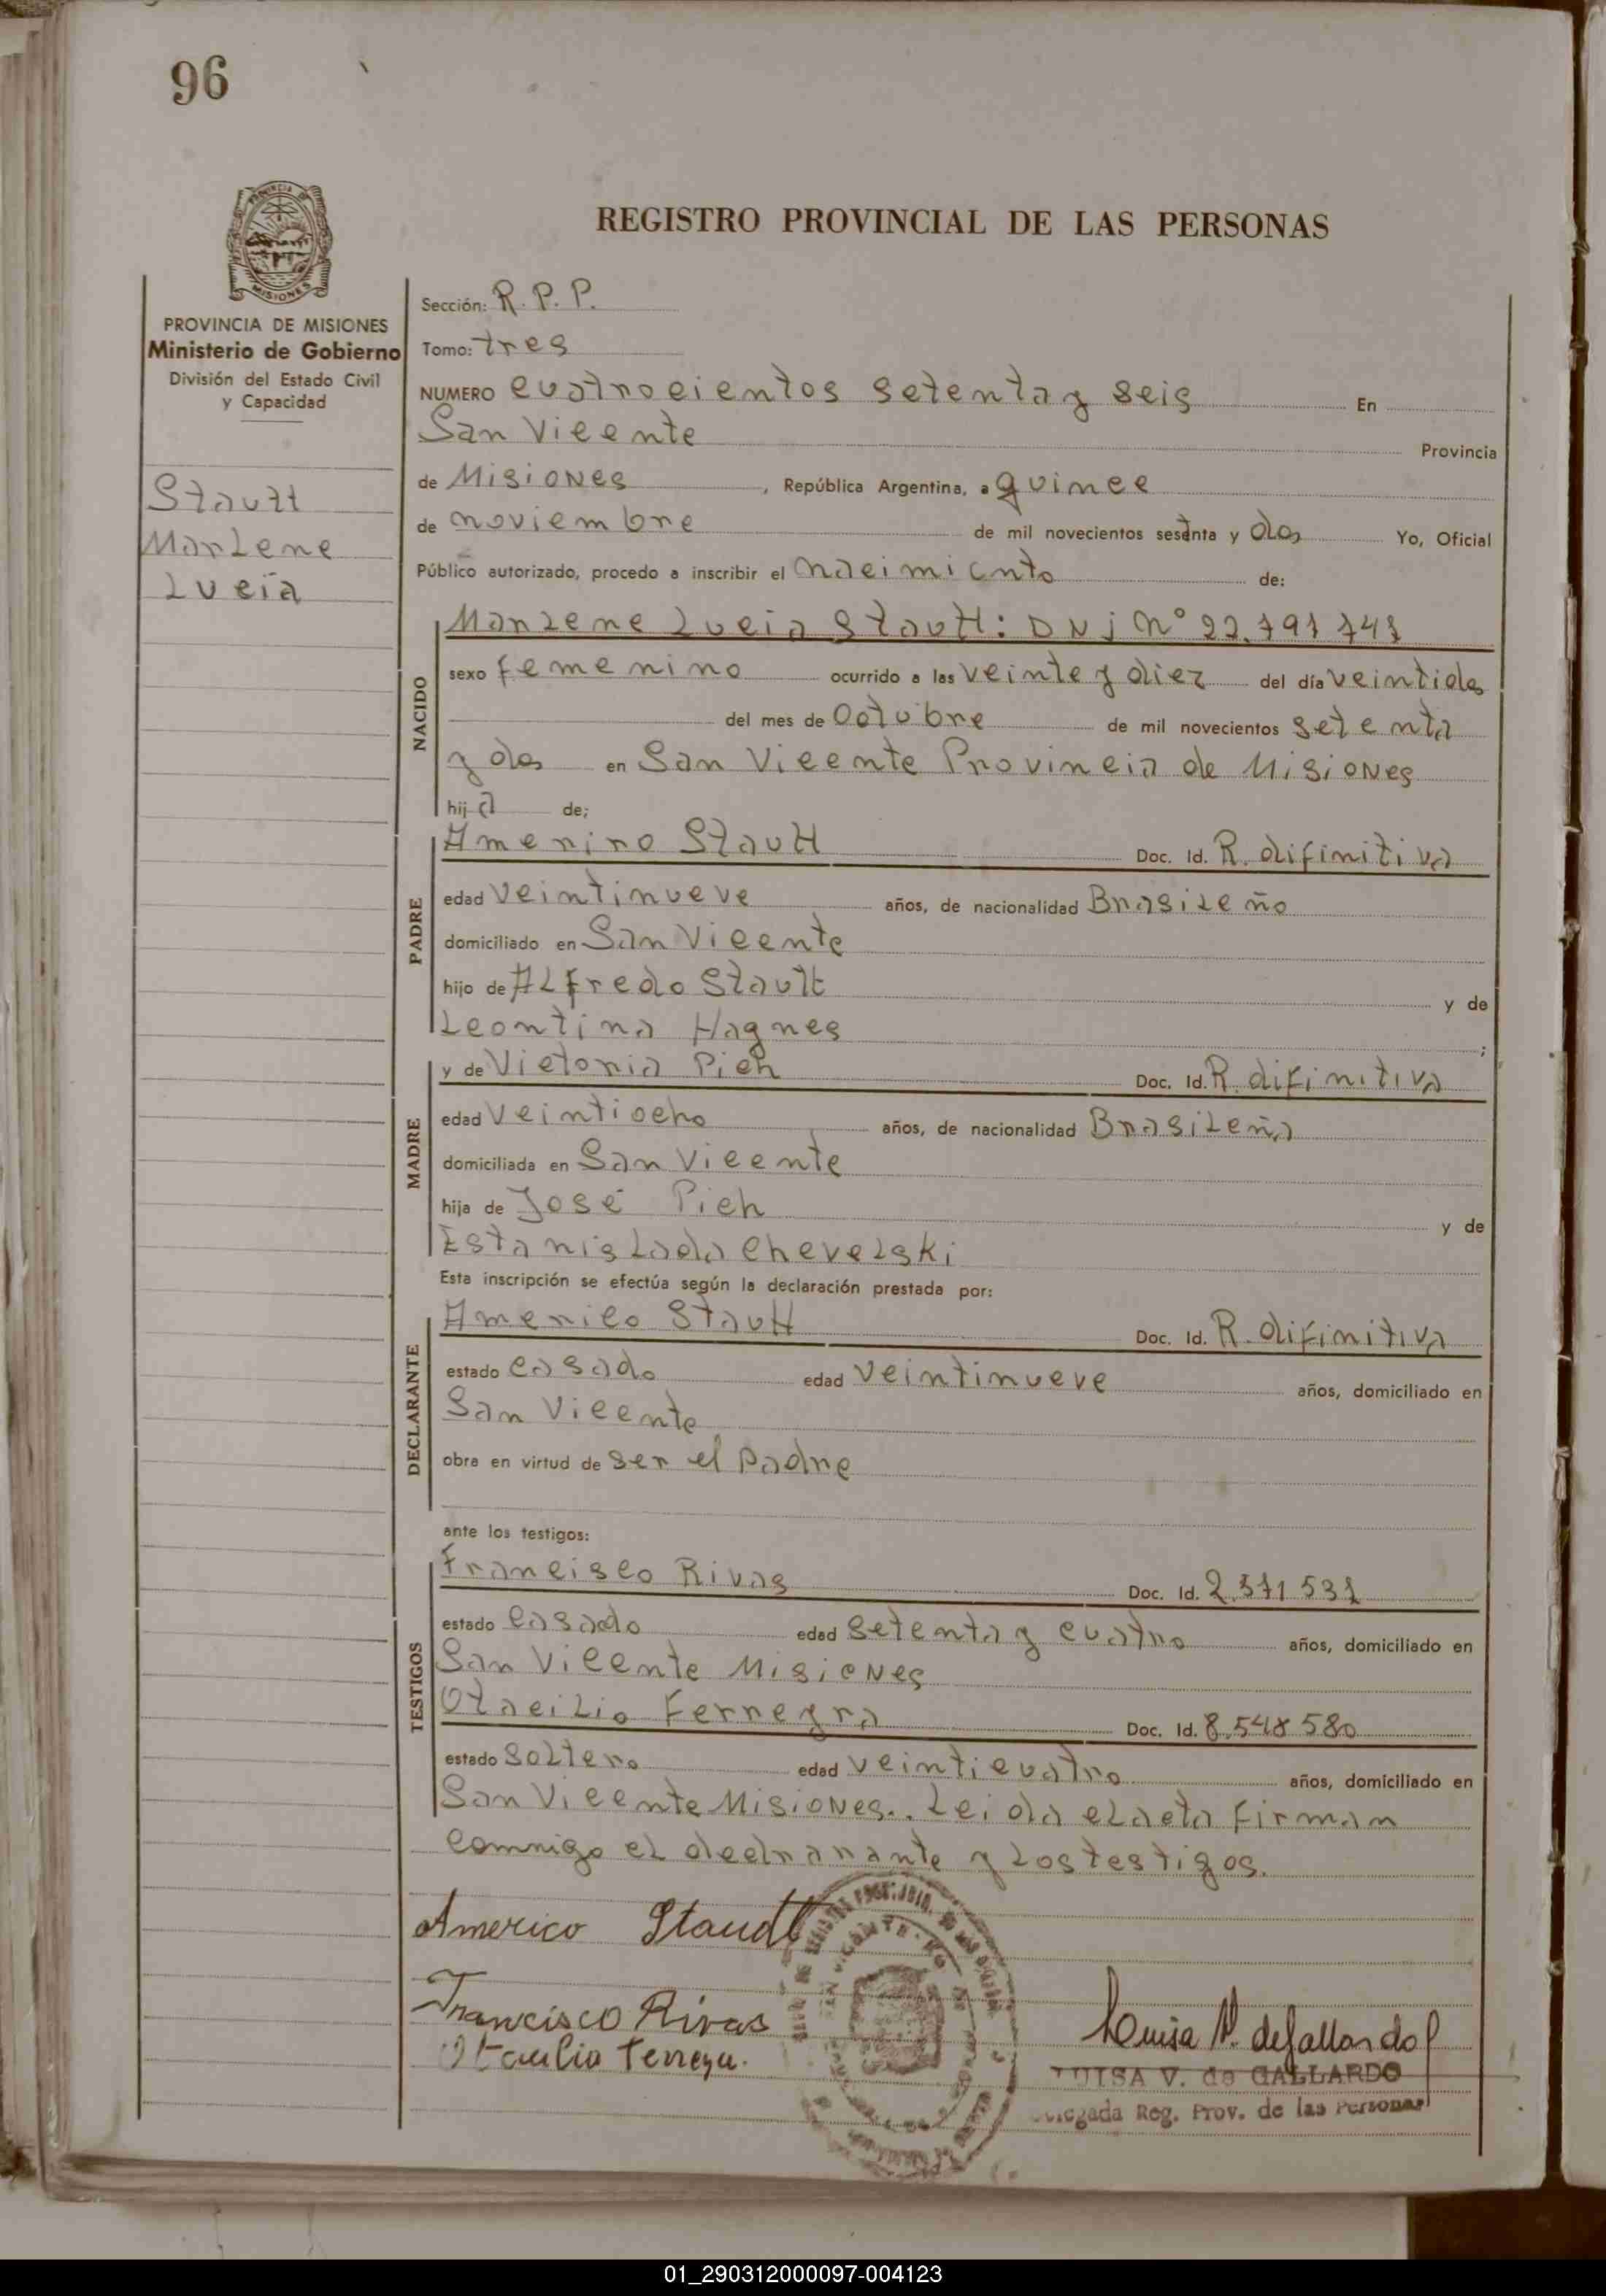 96
REGISTRO PROVINCIAL DE LAS PERSONAS
MISIONES
PROVINCIA DE MISIONES
Ministerio de Gobierno
División del Estado Civil
y Capacidad
Stautt
Marlene
Lucia
Sección: R. P. P.
Tomo: tres
NUMERO cuatrocientos setenta y seis En
San Vicente Provincia
de Misiones, República Argentina, a quince
de noviembre de mil novecientos sesenta y dos Yo, Oficial
Público autorizado, procedo a inscribir el nacimiento de:
NACIDO
Marlene Lucia Stautt: DNI Nº 22.791 741
sexo femenino ocurrido a las veinte y diez del día veintidos
del mes de Octubre de mil novecientos setenta
y dos en San Vicente Provincia de Misiones
hija de;
PADRE
Amerino Stautt Doc. Id. R. difinitiva
edad veintinueve años, de nacionalidad Brasileño
domiciliado en San Vicente
hijo de Alfredo Stault y de
Leontina Hagnes ;
MADRE
y de Victoria Pich Doc. Id. R. difinitiva
edad veintiocho años, de nacionalidad Brasileña
domiciliada en San Vicente
hija de José Pich y de
Estanislada Chevelski
Esta inscripción se efectúa según la declaración prestada por:
DECLARANTE
Americo Stautt Doc. Id. R. difinitiva
estado casado edad veintinueve años, domiciliado en
San Vicente
obra en virtud de ser el padre
ante los testigos:
TESTIGOS
Francisco Rivas Doc. Id. 2.371 531
estado casado edad setenta y cuatro años, domiciliado en
San Vicente Misiones
Otacilio Ferreyra Doc. Id. 8.548 580
estado soltero edad veinticuatro años, domiciliado en
San Vicente Misiones.. Leida el acta firman
comnigo el declarante y los testigos.
Americo Staudt
Francisco Rivas
Otacilio Ferreyra.
Luisa V. de Gallardo
LUISA V. de GALLARDO
Delegada Reg. Prov. de las Personas
01_290312000097-004123